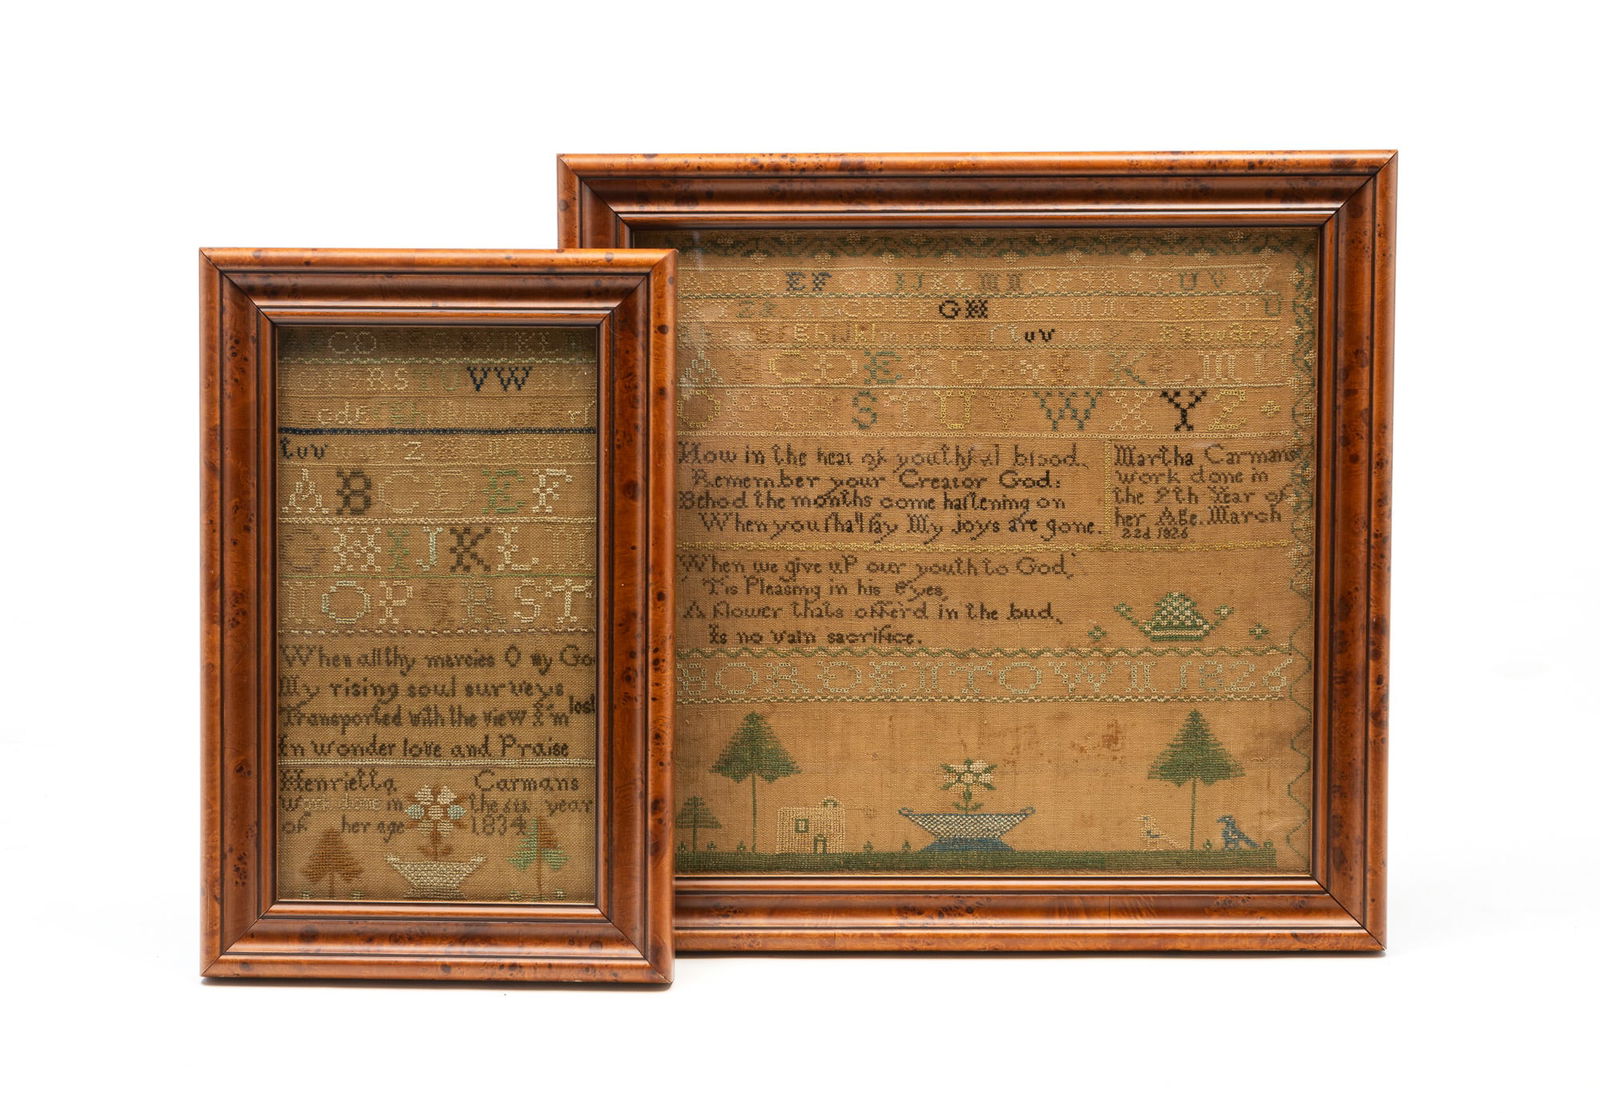 C D
R S T U V W
c d e f g h i j k
t u v w z
A B C D E F
G H I J K L M
N O P Q R S T
When all thy mercies O my Go
My rising soul surveys
Transported with the view I'm lost
In wonder love and Praise
Henrietta Carmans
Work done in the six year
of her age 1834
E F I J K L M N O P Q R S T U V W
G H
t u v
A B C D E F G H I J K L M N
O P Q R S T U V W X Y Z
Now in the heat of youthful blood,
Remember your Creator God:
Behod the months come hastening on
When you shall say My Joys are gone.
Martha Carmans
work done in
the 9th Year of
her Age. March
22d 1826
When we give uP our youth to God,
Tis Pleasing in his Eyes,
A flower thats offerd in the bud,
Is no vain sacrifice.
BORDENTOWN 1826